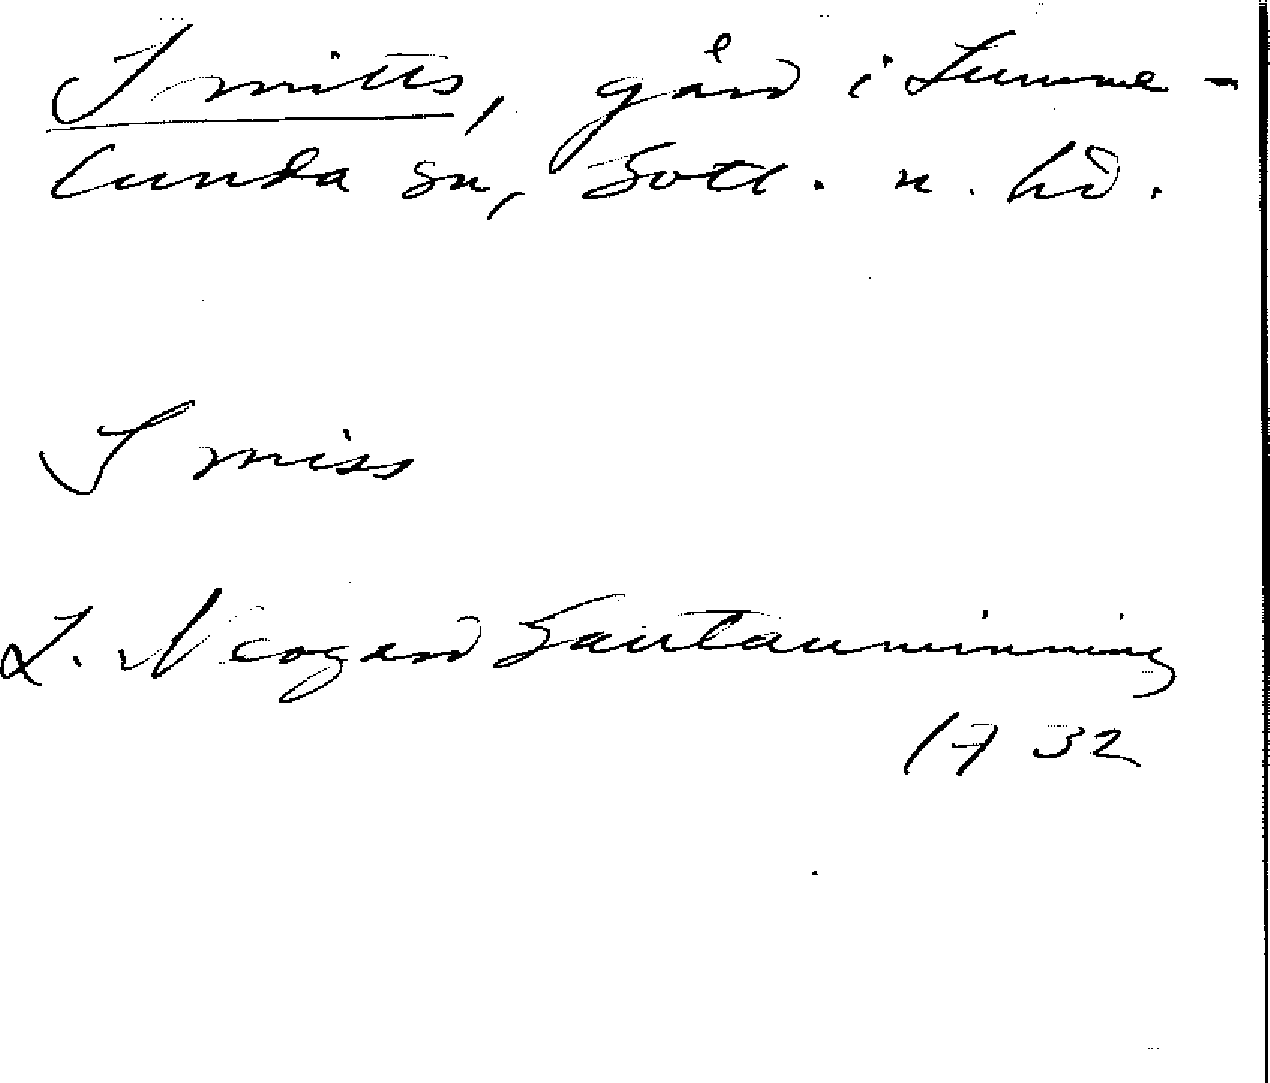 Smitts, gård i Lumme-
lunda sn, Gotl. n. hd.
Smiss
L. Neogard Gautauminning
1732